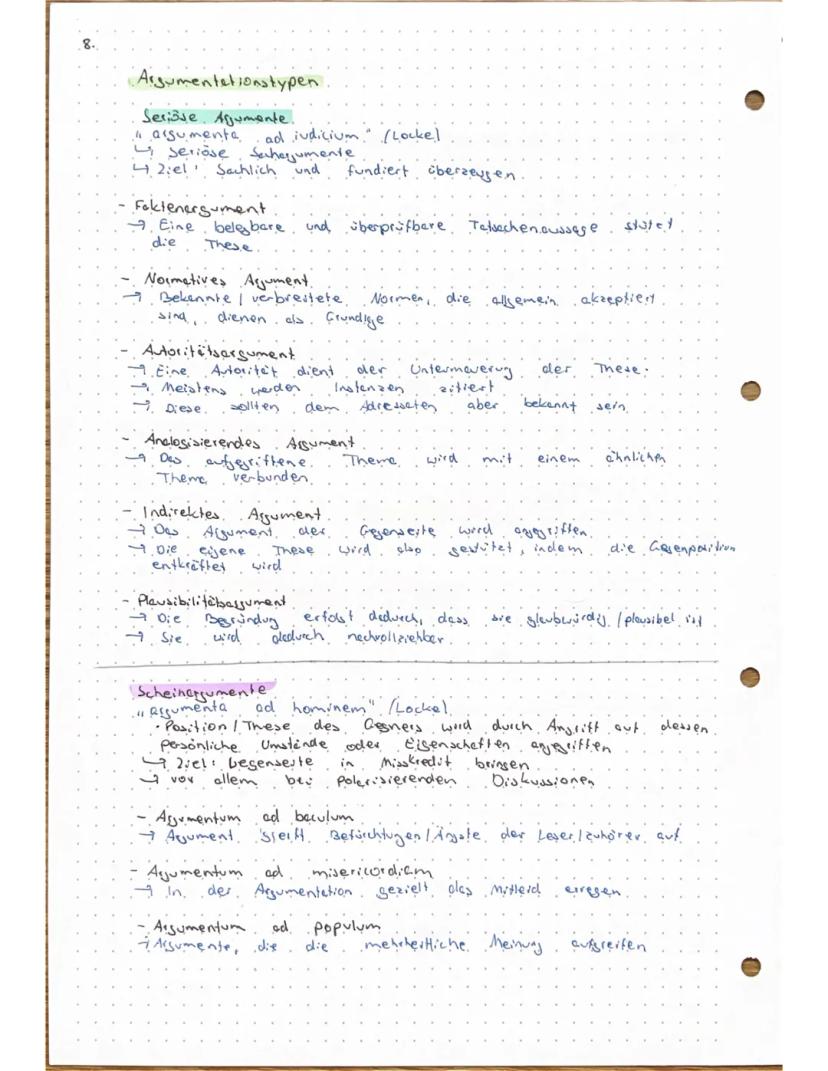 8.
Argumentationstypen
Seriöse Argumente
"argumenta ad iudicium" (Locke)
↳ seriöse Sachargumente
↳ Ziel: Sachlich und fundiert überzeugen
- Faktenargument
→ Eine belegbare und überprüfbare Tatsachenaussage stützt
die These
- Normatives Argument
→ Bekannte / verbreitete Normen, die allgemein akzeptiert
sind, dienen als Grundlage
- Autoritätsargument
→ Eine Autorität dient der Untermauerung der These.
→ Meistens werden Instanzen zitiert
→ Diese sollten dem Adressaten aber bekannt sein
- Analogisierendes Argument
→ Das aufgegriffene Thema wird mit einem ähnlichen
Thema verbunden
- Indirektes Argument
→ Das Argument der Gegenseite wird angegriffen
→ Die eigene These wird also gestützt, indem die Gegenposition
entkräftet wird
- Plausibilitätsargument
→ Die Begründung erfolgt dadurch, dass sie glaubwürdig / plausibel ist
→ Sie wird dadurch nachvollziehbar
Scheinargumente
"argumenta ad hominem" (Locke)
• Position / These des Gegners wird durch Angriff auf dessen
persönliche Umstände oder Eigenschaften angegriffen
↳ Ziel: Gegenseite in Misskredit bringen
→ vor allem bei Polarisierenden Diskussionen
- Argumentum ad baculum
→ Argument greift Befürchtungen / Ängste der Leser / Zuhörer auf
- Argumentum ad misericordiam
→ In der Argumentation gezielt das Mitleid erregen
- Argumentum ad populum
→ Argumente, die die mehrheitliche Meinung aufgreifen